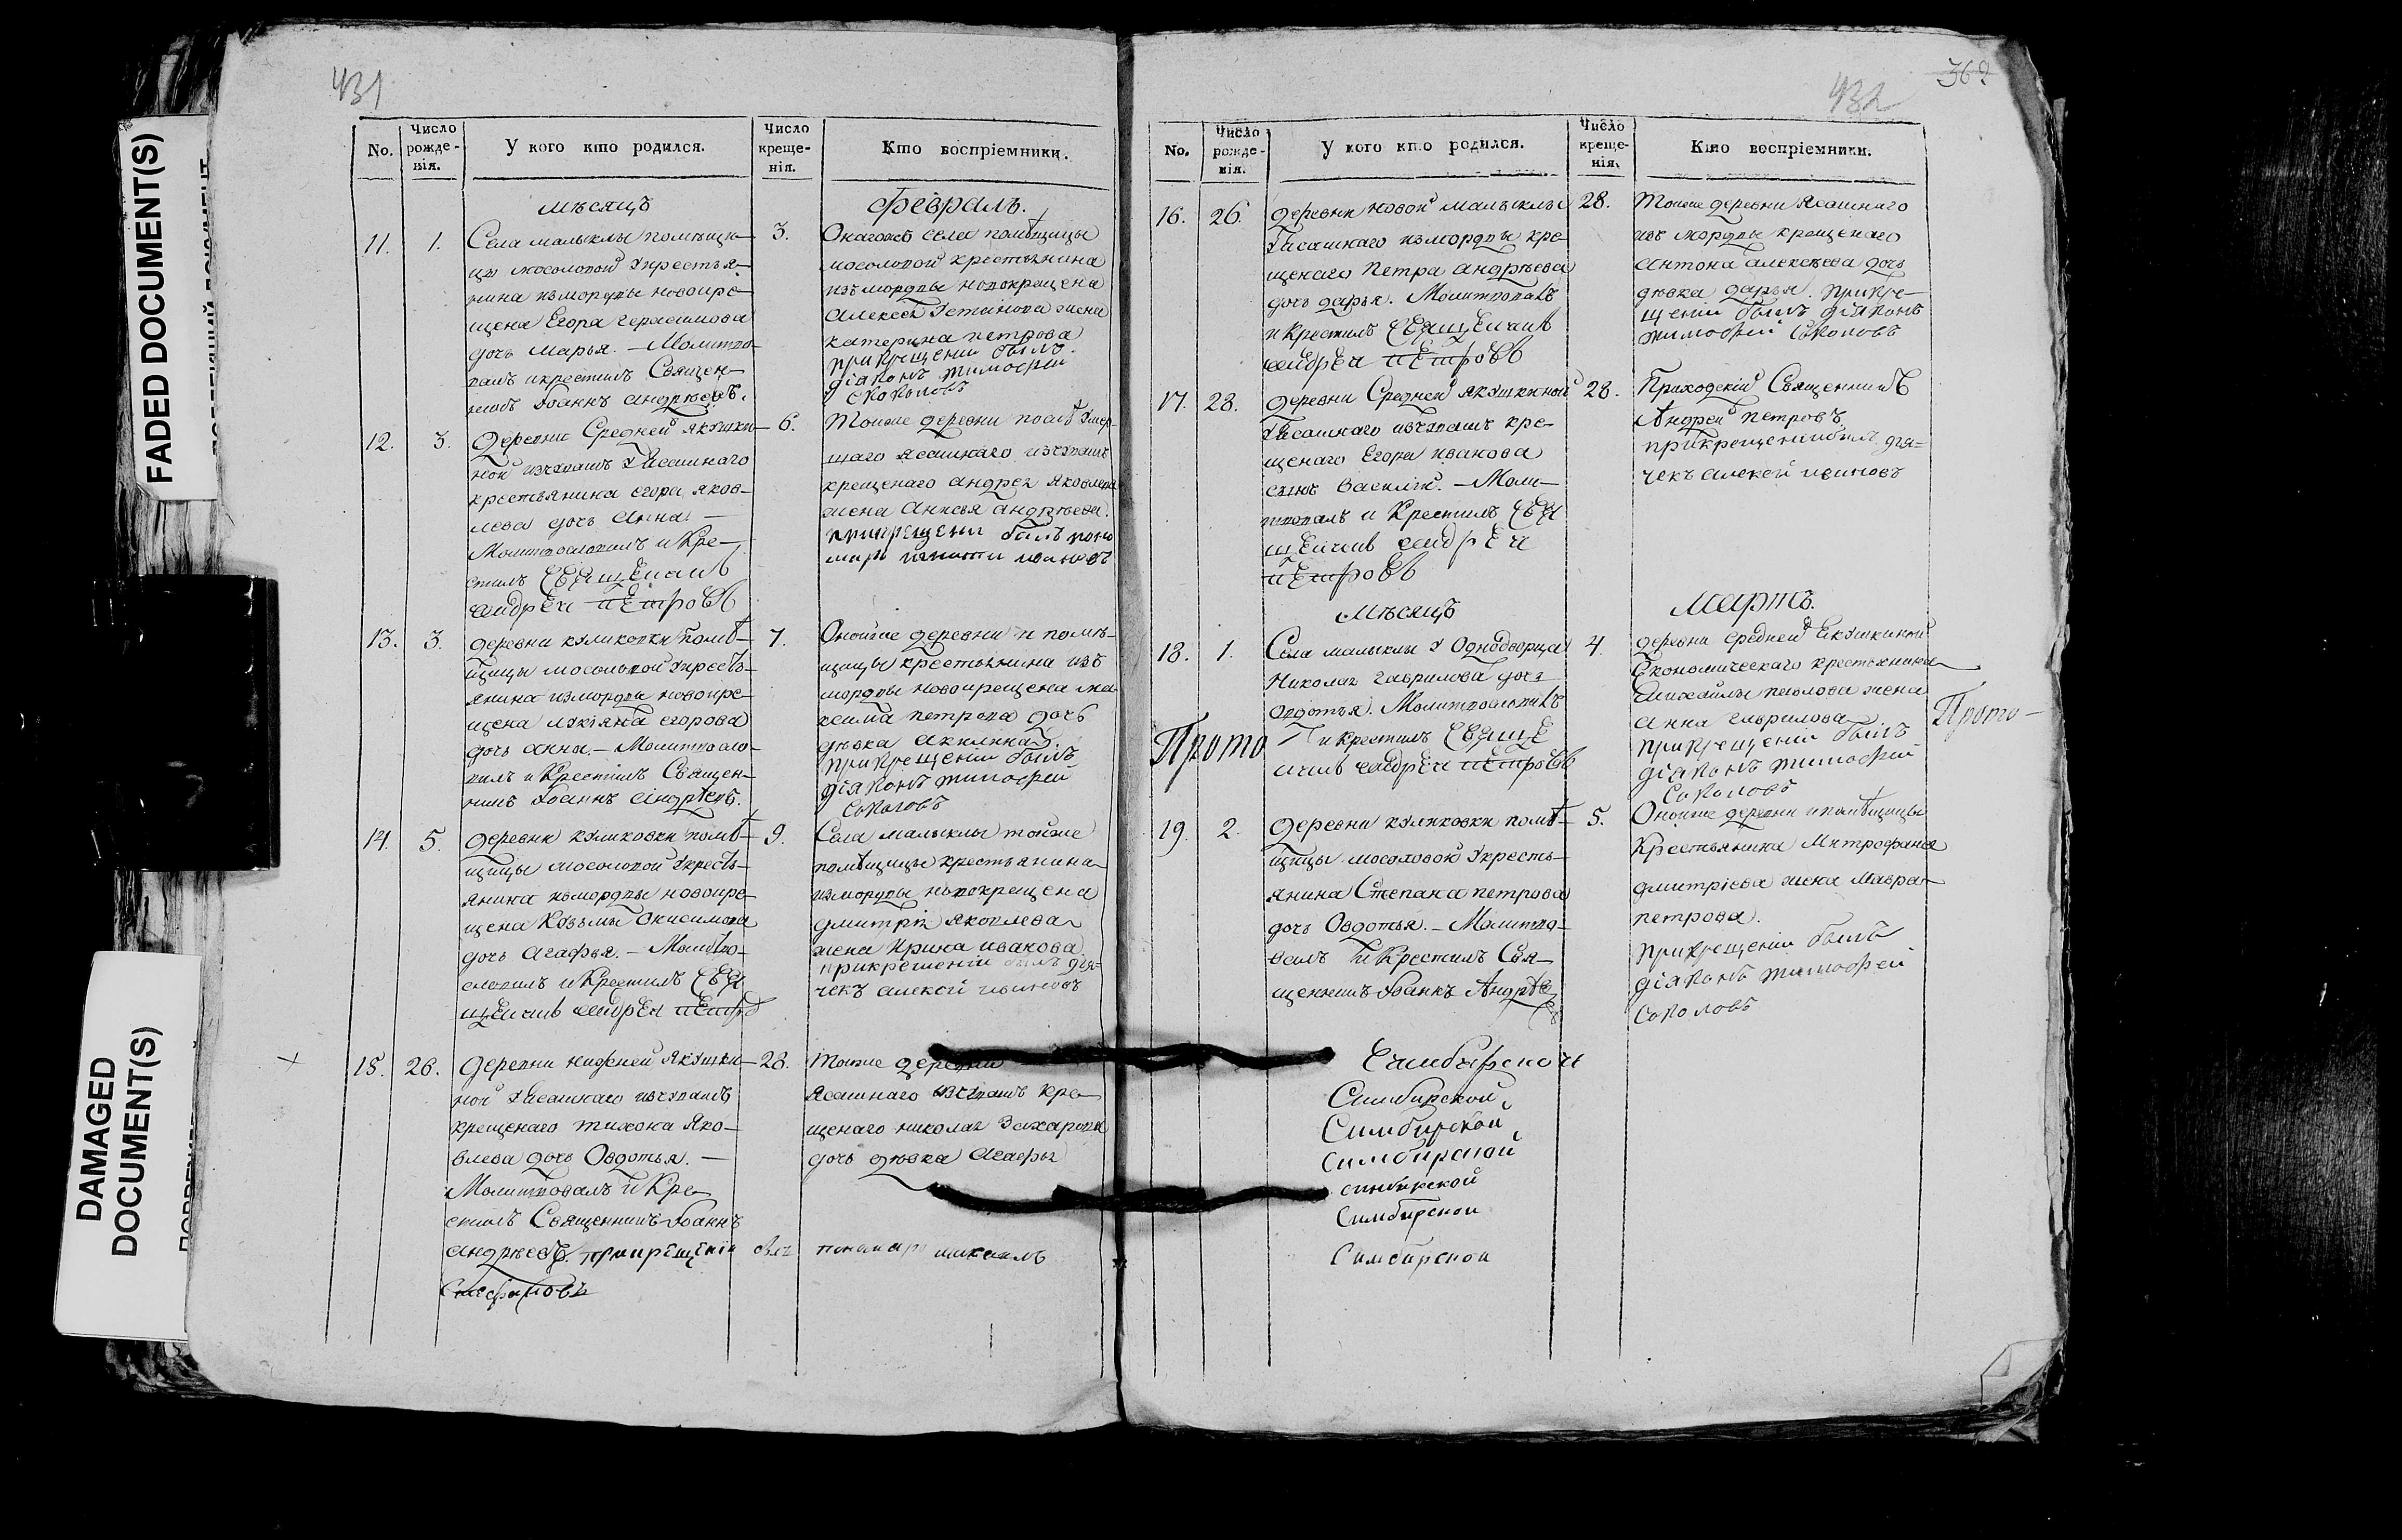 431
No.
Число рожде-нія.
У кого кто родился.
Число креще-нія.
Кто воспріемники.
мѣсяцъ
февраль.
11.
1.
Села малыклы помѣщи-
цы мосоловой у крестья-
нина измордвы новокре-
щена Егора герасимова
дочь марья. — Молитво-
валъ икрестилъ Священ-
никъ Іоаннъ андрѣевъ.
3.
Онагожъ села помѣщицы
мосоловой крестьянина
измордвы новокрещена
алексея жена
катерина петрова
прикрещеніи былъ
діаконъ тимофей
соколовъ
12.
3.
деревни Средней якушки-
ной изчувашъ у Ясашнаго
крестьянина егора яков-
лева дочь анна —
Молитвословилъ и Кре-
стилъ Священникъ
андрей петровъ
6.
Тоиже деревни послѣ умер-
шаго ясашнаго изчувашъ
крещенаго андрея яковлева
жена Анисья андрѣева.
прикрещени былъ поно
марь ивановъ
13.
3.
деревни куликовки помѣ-
щицы мосоловой укресть-
янина измордвы новокре-
щена лукіяна егорова
дочь анна — Молитвосло-
вилъ и Крестилъ Священ-
никъ Іоаннъ андрѣевъ.
7.
Оноиже деревни и помѣ-
щицы крестьянина изъ
мордвы новокрещена ма-
ксима петрова дочь
дѣвка акилина.
прикрещеніи былъ
діаконъ тимофей
Соколовъ
14.
5.
деревни куликовки помѣ-
щицы мосоловой укресть-
янина измордвы новокре-
щена Козьмы Онисимова
дочь агафья. — Молитво-
словилъ и Крестилъ Свя
щенникъ андрей петровъ
9.
Села малыклы тойже
помѣщицы крестьянина
измордвы новокрещена
дмитрія яковлева
жена Ирина иванова
прикрещеніи былъ дья-
чекъ алексей ивановъ
15.
26.
деревни нижней якушки-
ной у Ясашнаго изчувашъ
крещенаго тихона Яко-
влева дочь Овдотья. —
Молитвовалъ и Кре-
стилъ Священникъ Іоаннъ
андрѣевъ. прикрещеніи былъ пономарь михаилъ
Стефановъ
28.
Тоиже деревни
Ясашнаго изчувашъ кре-
щенаго николая Захарова
дочь дѣвка агафья
432
362
No.
Число рожде-нія.
У кого кто родился.
Число креще-нія.
Кто воспріемники.
16.
26.
деревни новой малыклы
у Ясашнаго измордвы кре-
щенаго Петра андрѣева
дочь дарья. Молитвовалъ
и Крестилъ Священникъ
андрей петровъ
28.
Тоиже деревни Ясашнаго
изъ мордвы крещенаго
антона алексѣева дочь
дѣвка дарья. прикре-
щеніи былъ діяконъ
тимофей Соколовъ
17.
28.
деревни Средней якушкиной
у Ясашнаго изчувашъ кре-
щенаго Егора иванова
сынъ василій. — Моли-
твовалъ и Крестилъ Свя
щенникъ андрей
петровъ
28.
Приходскій Священникъ
Андрей петровъ
прикрещеніибыл дья=
чекъ алексей ивановъ
мѣсяцъ
Мартъ.
18.
1.
Села малыклы у Однодворца
Николая гаврилова дочь
овдотья. Молитвословилъ
и крестилъ Священ
никъ андрей петровъ
4.
деревни средней Екушкиной
Економическаго крестьянина
михайлы павлова жена
анна гаврилова
прикрещеніи былъ
діяконъ тимофей
Соколовъ
Прото
Прото-
19.
2.
деревни куликовки помѣ-
щицы мосоловой укресть-
янина Степана петрова
дочь Овдотья. — Молитво-
валъ и Крестилъ Свя-
щенникъ Іоаннъ Андрѣе
5.
Оноиже деревни ипомѣщицы
Крестьянина Митрофана
дмитріева жена Мавра
петрова.
прикрещеніи былъ
діяконъ тимофей
Соколовъ
Симбирской
Симбирской
Симбирской
Симбирской
симбирской
Симбирской
Симбирской
FADED DOCUMENT(S)
DAMAGED
DOCUMENT(S)